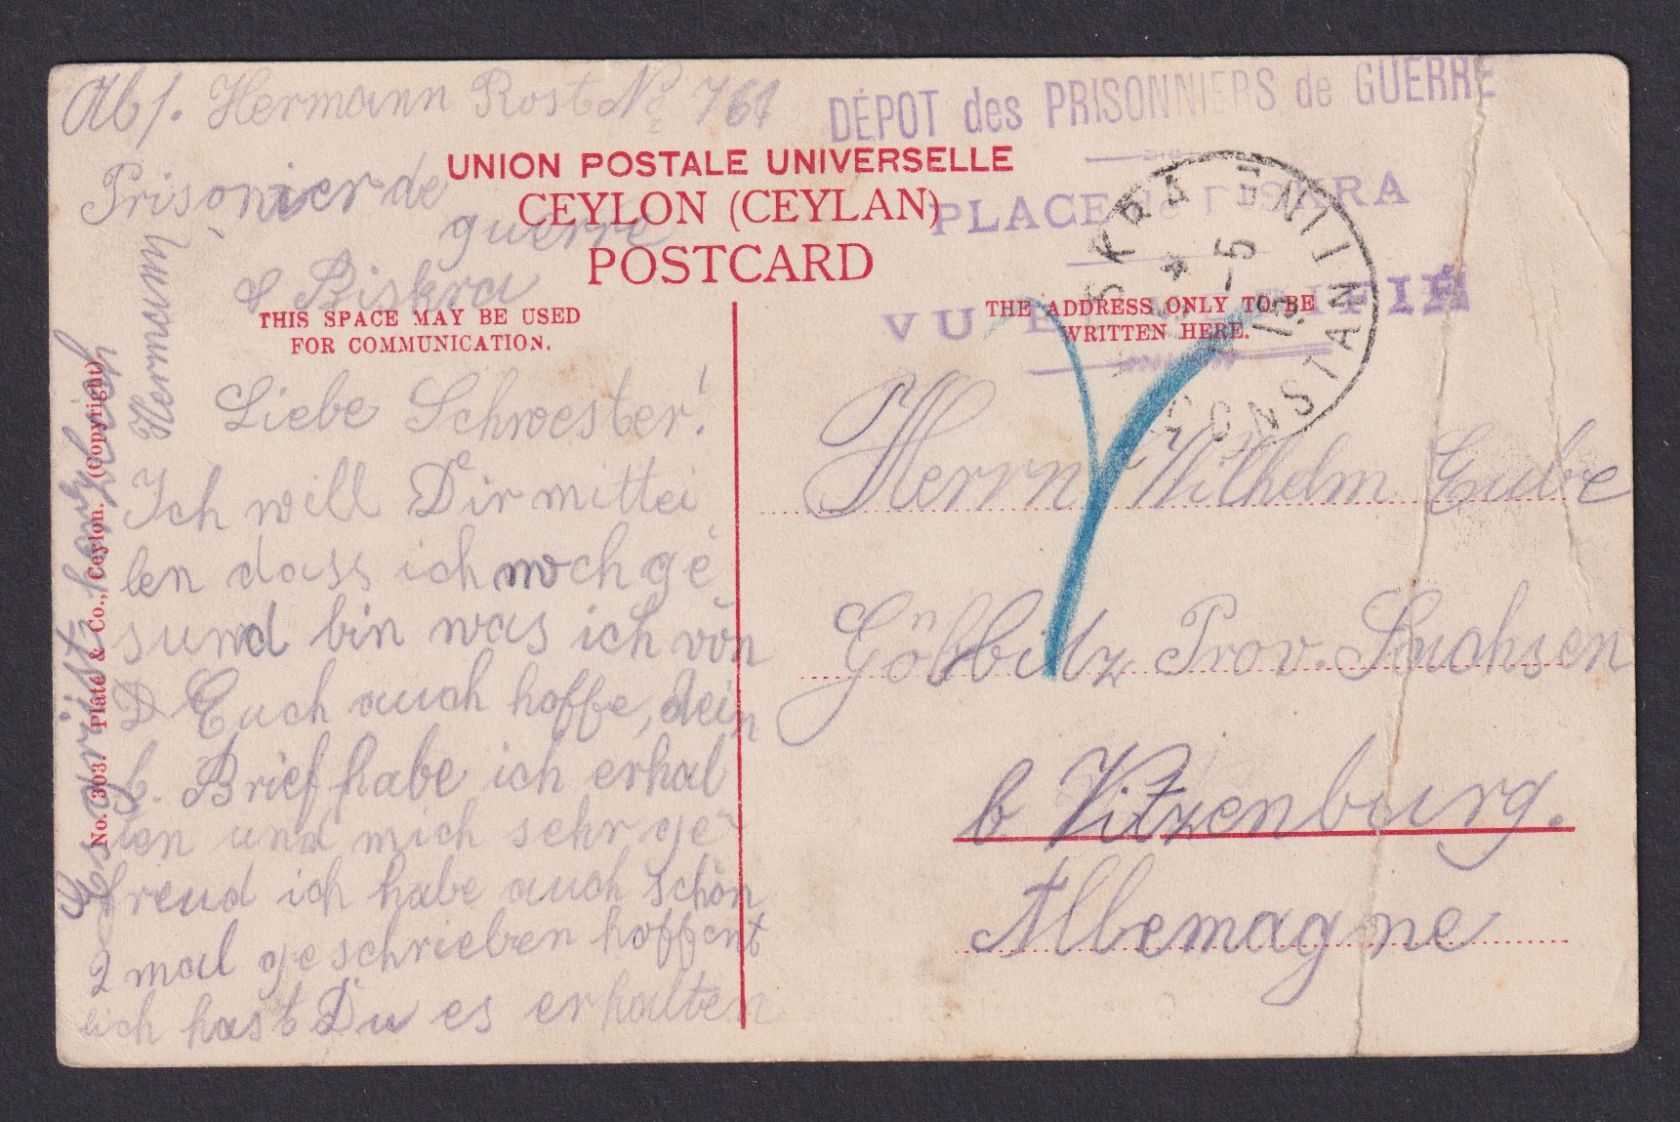 Abs. Hermann Rost No. 761
Prisonier de
guerre
à Biskra
DÉPOT des PRISONNIERS de GUERRE
PLACE de BISKRA
VU ET VÉRIFIÉ
UNION POSTALE UNIVERSELLE
CEYLON (CEYLAN)
POSTCARD
THIS SPACE MAY BE USED
FOR COMMUNICATION.
THE ADDRESS ONLY TO BE
WRITTEN HERE.
BISKRA
5-5
CONSTANTINE
Liebe Schwester!
Ich will Dir mittei
len dass ich noch ge
sund bin was ich von
Euch auch hoffe, dein
l. Brief habe ich erhal
ten und mich sehr ge-
freud ich habe auch schon
2 mal geschrieben hoffent
lich hast Du es erhalten
Es grüsst herzlich
Hermann
No. 303. Plâté & Co., Ceylon. (Copyright)
Herrn Wilhelm
Prov. Sachsen
b Vitzenburg.
Allemagne